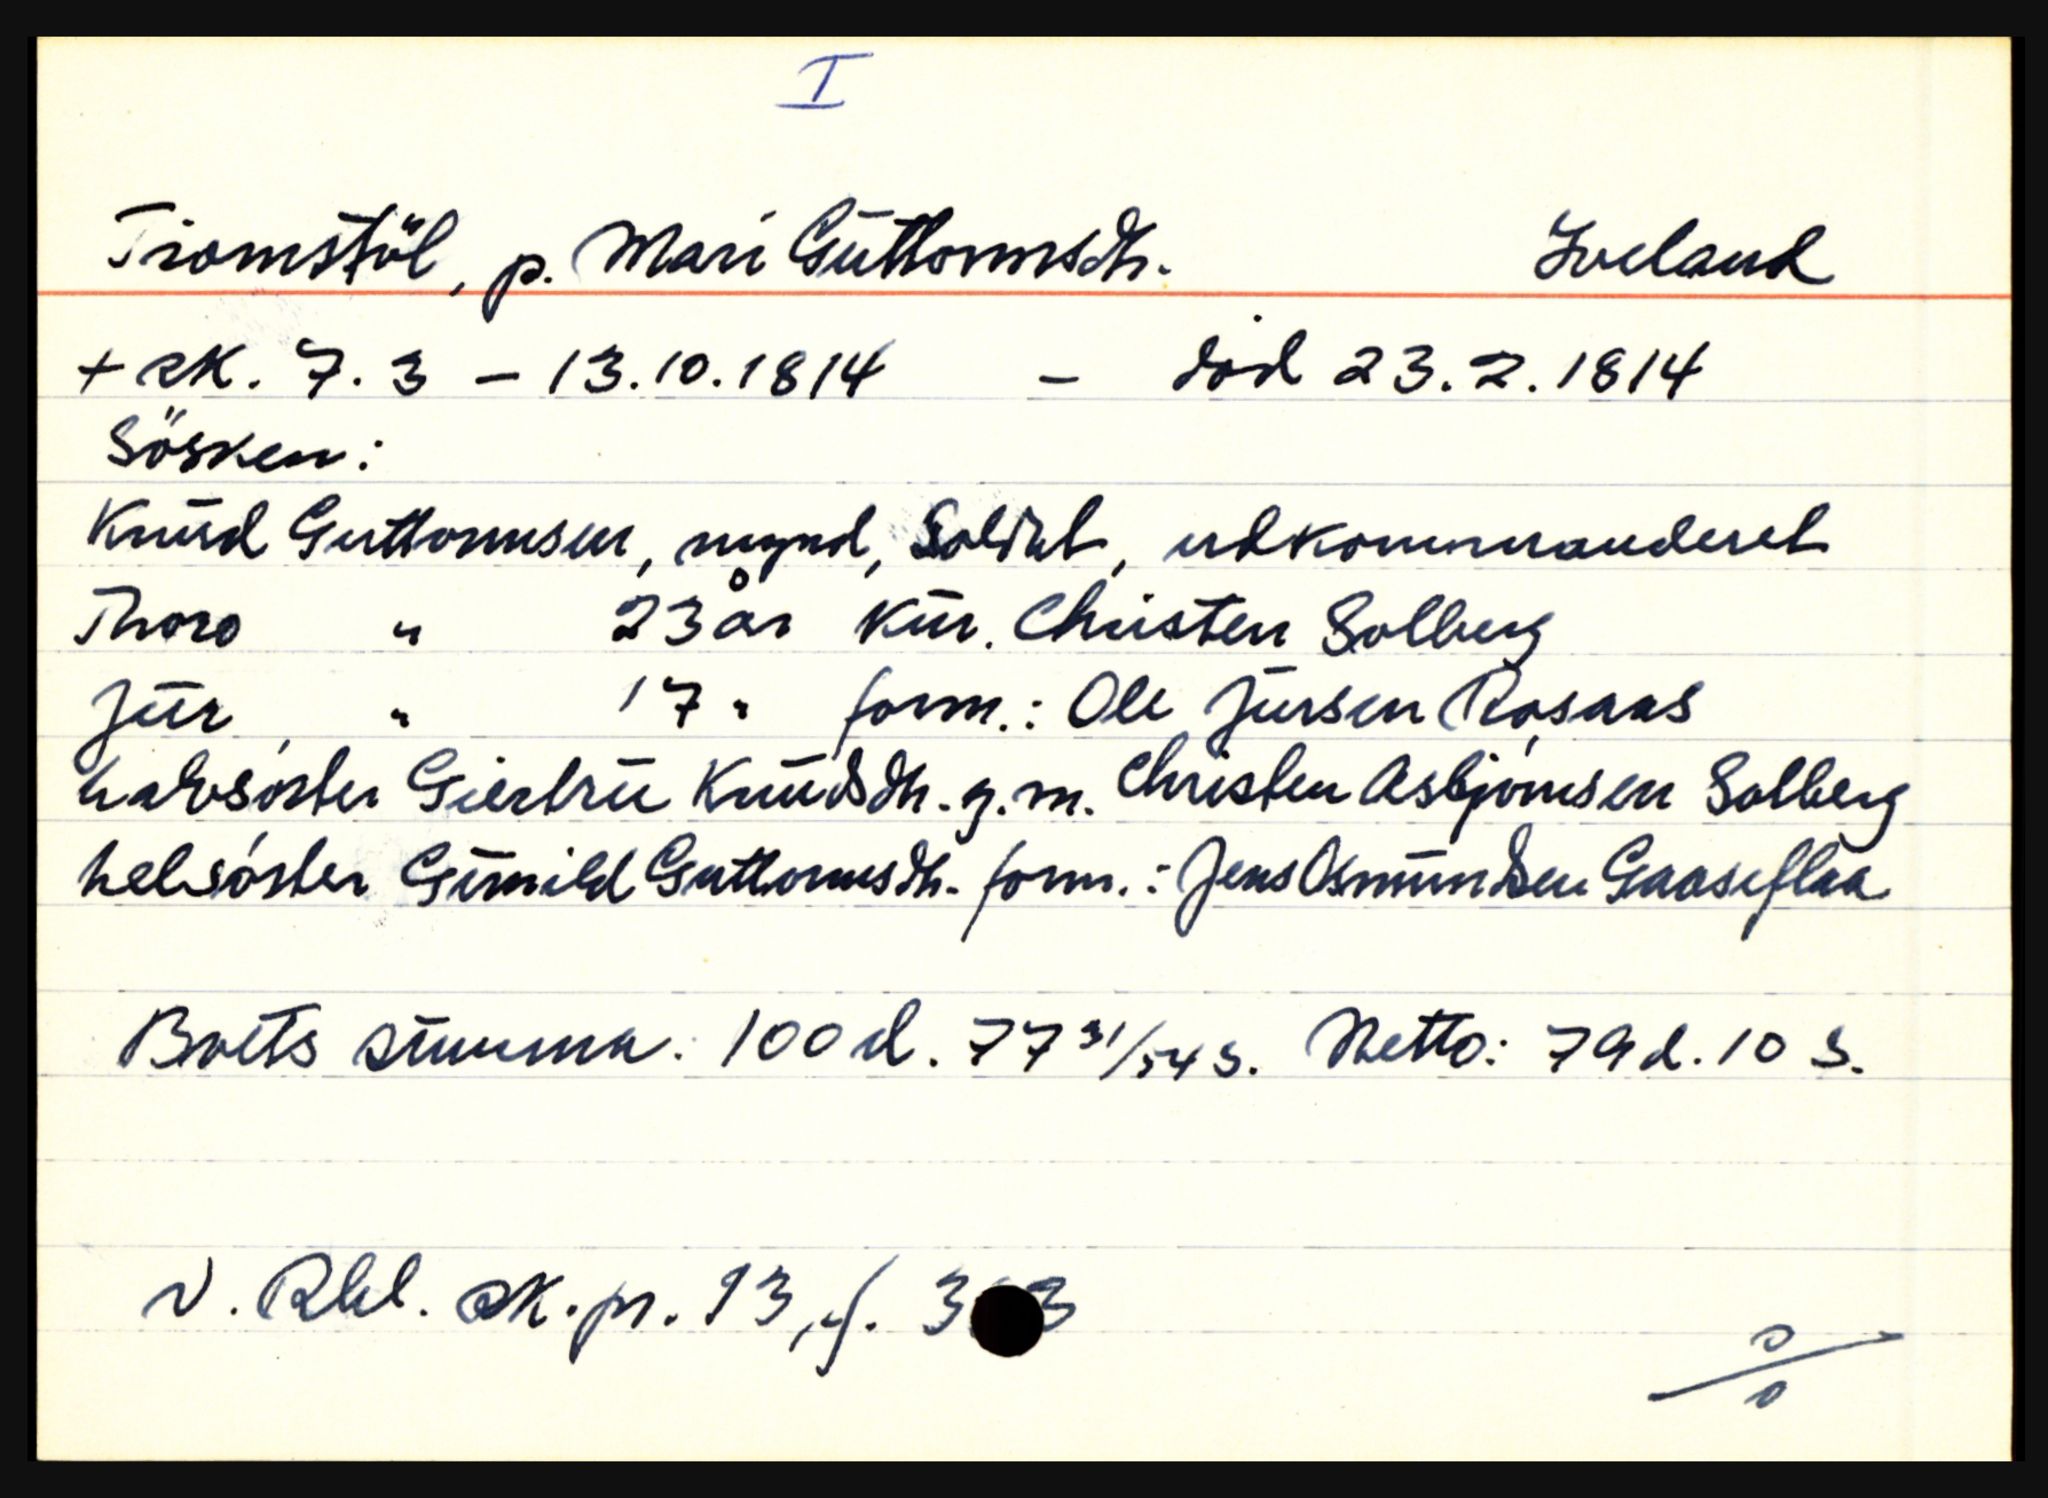 I
Tiomstöl, p. Mari Guttormsdtr. Iveland
+ sk. 7.3 - 13.10.1814 - död 23.2.1814
Sösken:
Knud Guttormsen, mynd, Soldat, udkommanderet
Thoro " 23 år kur. Christen Solberg
Jür " 17 " form.: Ole Jürsen Rosaas
halvsöster Giertru Knudsdtr. g.m. Christen Asbjörnsen Solberg
helsöster Gunild Guttormsdtr. form.: Jens Osmundsen Gaaseflaa
Boets summa: 100 d. 77 31/54 s. Netto: 79 d. 10 s.
N. Rbl. sk.pr. 13, f.